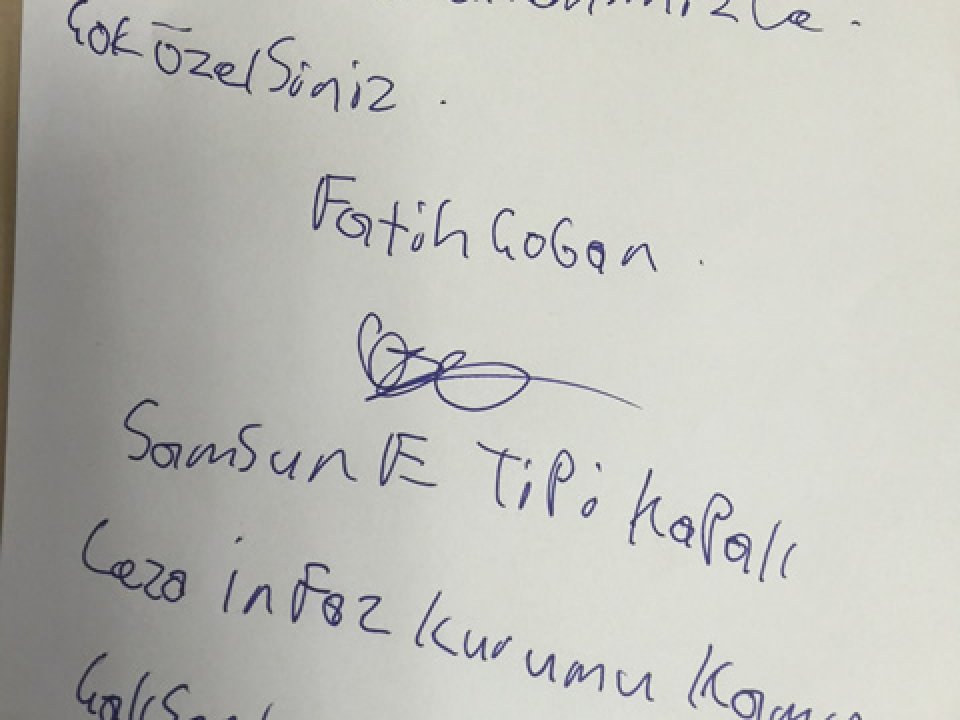 Çok özelsiniz .
Fatih Çoban .
Samsun E Tipi Kapalı
Ceza infaz Kurumu